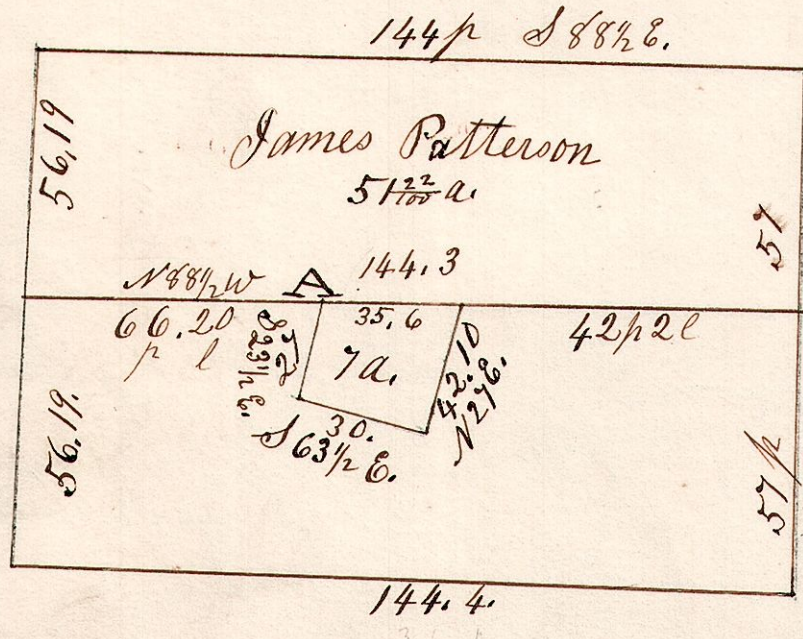 144p S 88½ E.
56,19
James Patterson
51 22/100 a.
57
N 88½ W
A
144.3
66.20
p l
35.6
42p2l
7a.
S 23½ E.
42.10
N 27 E.
30.
S 63½ E.
56.19.
57 p
144.4.